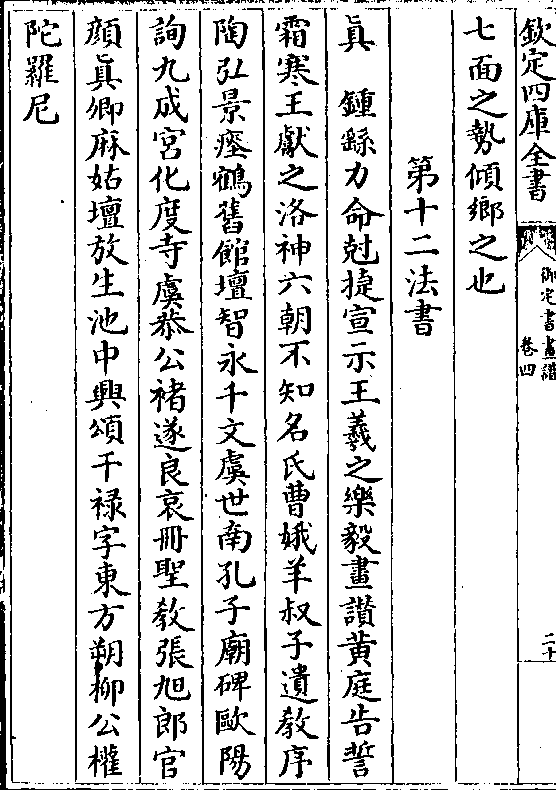 欽定四庫全書
御定書畫譜
卷四
二十
七面之勢傾鄉之也
第十二法書
眞 鍾繇力命尅捷宣示王羲之樂毅畫讃黄庭告誓
霜寒王獻之洛神六朝不知名氏曹娥羊叔子遺教序
陶弘景瘞鶴舊館壇智永千文虞世南孔子廟碑歐陽
詢九成宮化度寺虞恭公褚遂良哀冊聖教張旭郎官
顔眞卿麻姑壇放生池中興頌干禄字東方朔柳公權
陀羅尼